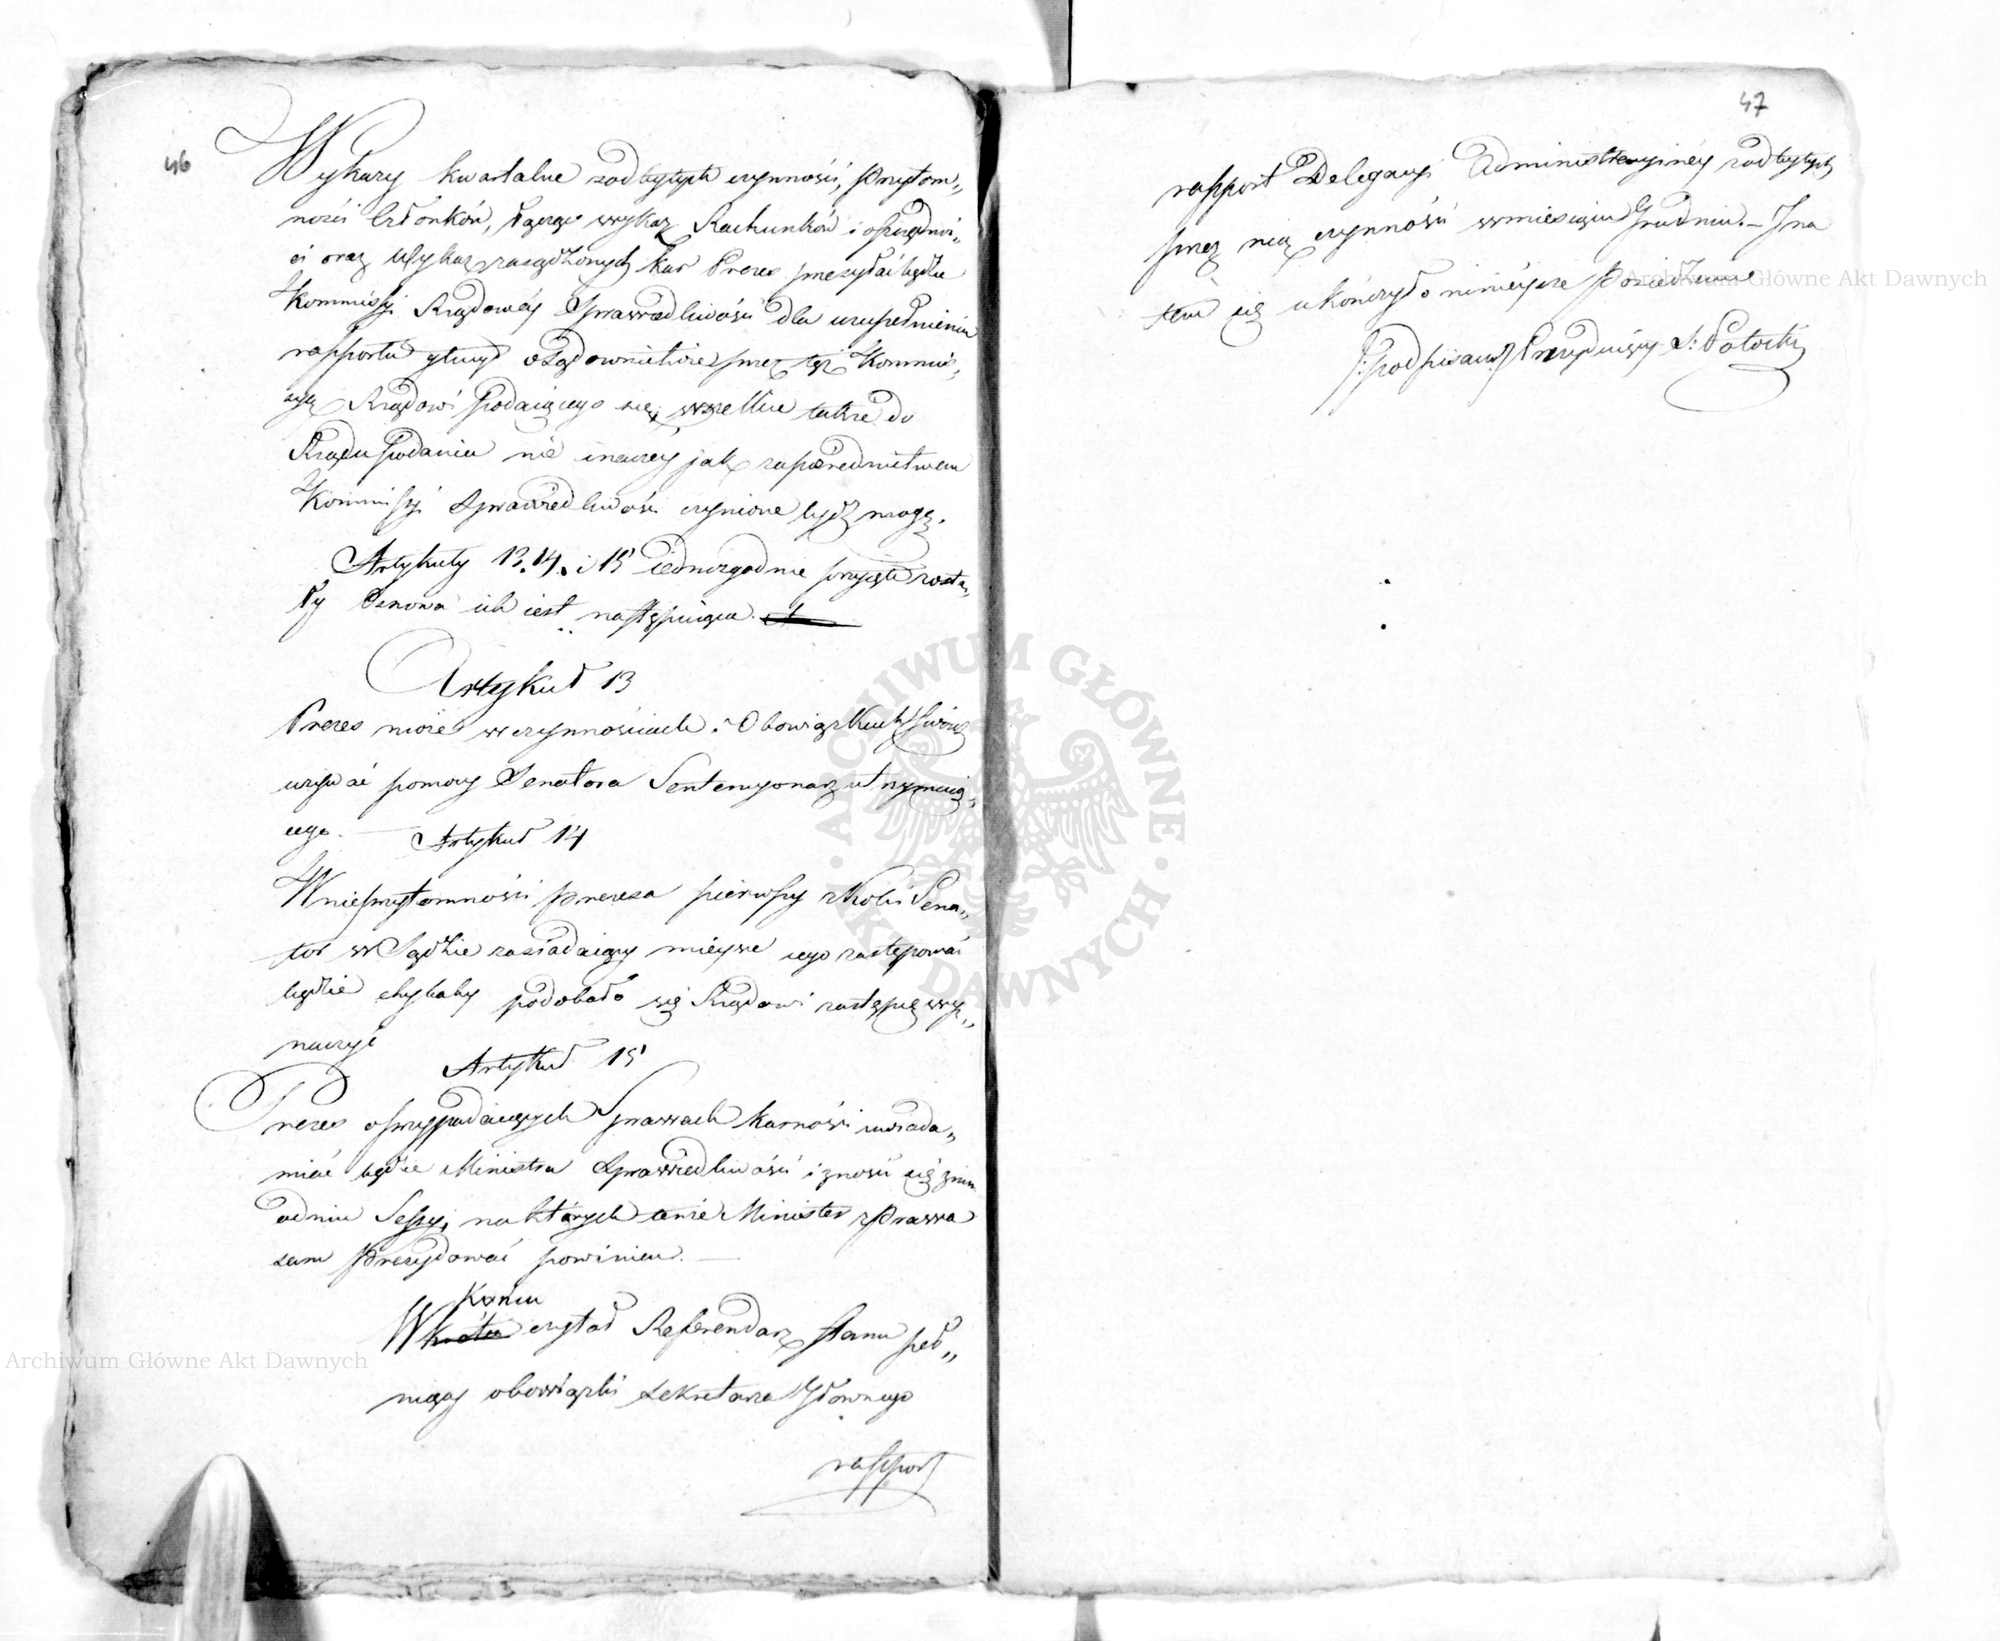 46
Wykazy kwartalne z odbytych czynności, przytom„
ności Członków, łącząc wykaz Rachunków i oszczędnoś„
ci oraz Wykaz zasądzonych kar Prezes przesyłać będzie
Kommissyi Rządowéy Sprawiedliwości dla uzupełnienia
rapportu o Sądownictwie przez tęż Kommis„
syą Rządowi podaiącego się, wszelkie także do
Rządu podania nie inaczéy jak za pośrednictwem
Kommissyi Sprawiedliwości czynione bydź mogą.
Artykuły 13. 14. i 15 iednozgodnie przyięte zosta„
ły Osnowa ich iest następuiąca.
Artykuł 13
Prezes może w czynnościach i Obowiązkach swoich
używać pomocy Senatora Sentencyonarz utrzymuią„
cego. —
Artykuł 14
W nieprzytomności Prezesa pierwszy z Kolei Sena„
tor w Sądzie zasiadaiący mieysce iego zastępować
będzie chybaby podobało się Rządowi zastępcę wy„
znaczyć
Artykuł 15
Prezes o przypadaiących Sprawach karności uwiada„
miać będzie Ministra Sprawiedliwości i znosić się z nim
o dniu Sessyi, na których tenże Minister z Prawa
sam Prezydować powinien. —
Końcu
W krótce czytał Referendarz Stanu peł„
niący obowiązki Sekretarza Głównego
rapport
47
rapport Delegacyi Administracyinéy z odbytych
przez nią czynności w miesiącu Grudniu. — I na
tém się ukończyło ninieysze Posiedzenie
/:podpisano:/ Prezyduiący S: Potocki
Archiwum Główne Akt Dawnych
Archiwum Główne Akt Dawnych
· ARCHIWUM GŁÓWNE · AKT DAWNYCH